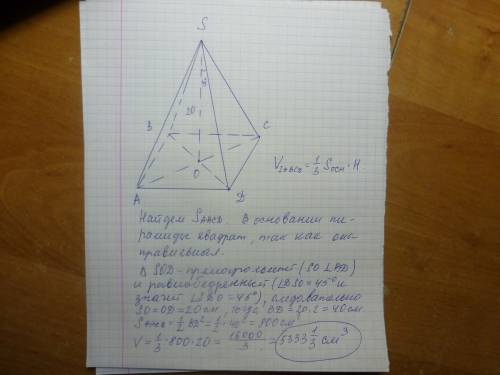 S
20
B
C
O
A
D
V_SABCD = 1/3 S осн · H
Найдем S_ABCD. В основании пи-
рамиды квадрат, так как она
правильная.
Δ SOD - прямоугольный (SO ⊥ BD)
и равнобедренный (∠DSO = 45° и
значит ∠SDO = 45°), следовательно
SO = OD = 20 см, тогда BD = 20 · 2 = 40 см.
S_ABCD = 1/2 BD² = 1/2 · 40² = 800 см²
V = 1/3 · 800 · 20 = 16000/3 = 5333 1/3 см³